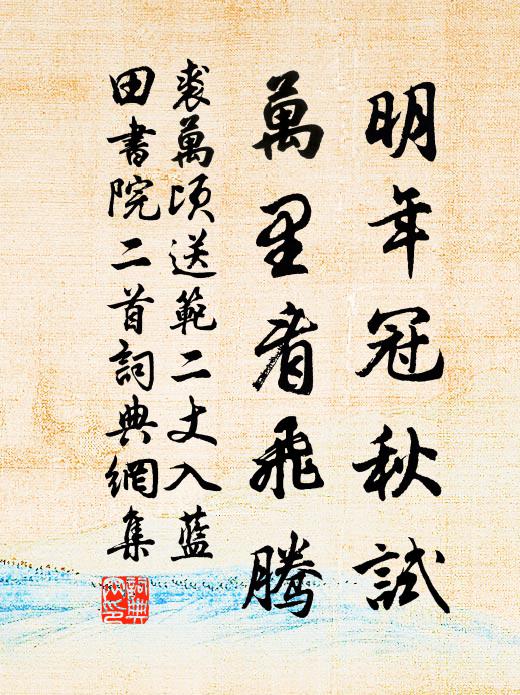 明年冠秋試
萬里看飛騰
裘萬頃送範二丈入藍
田書院二首詞典網集